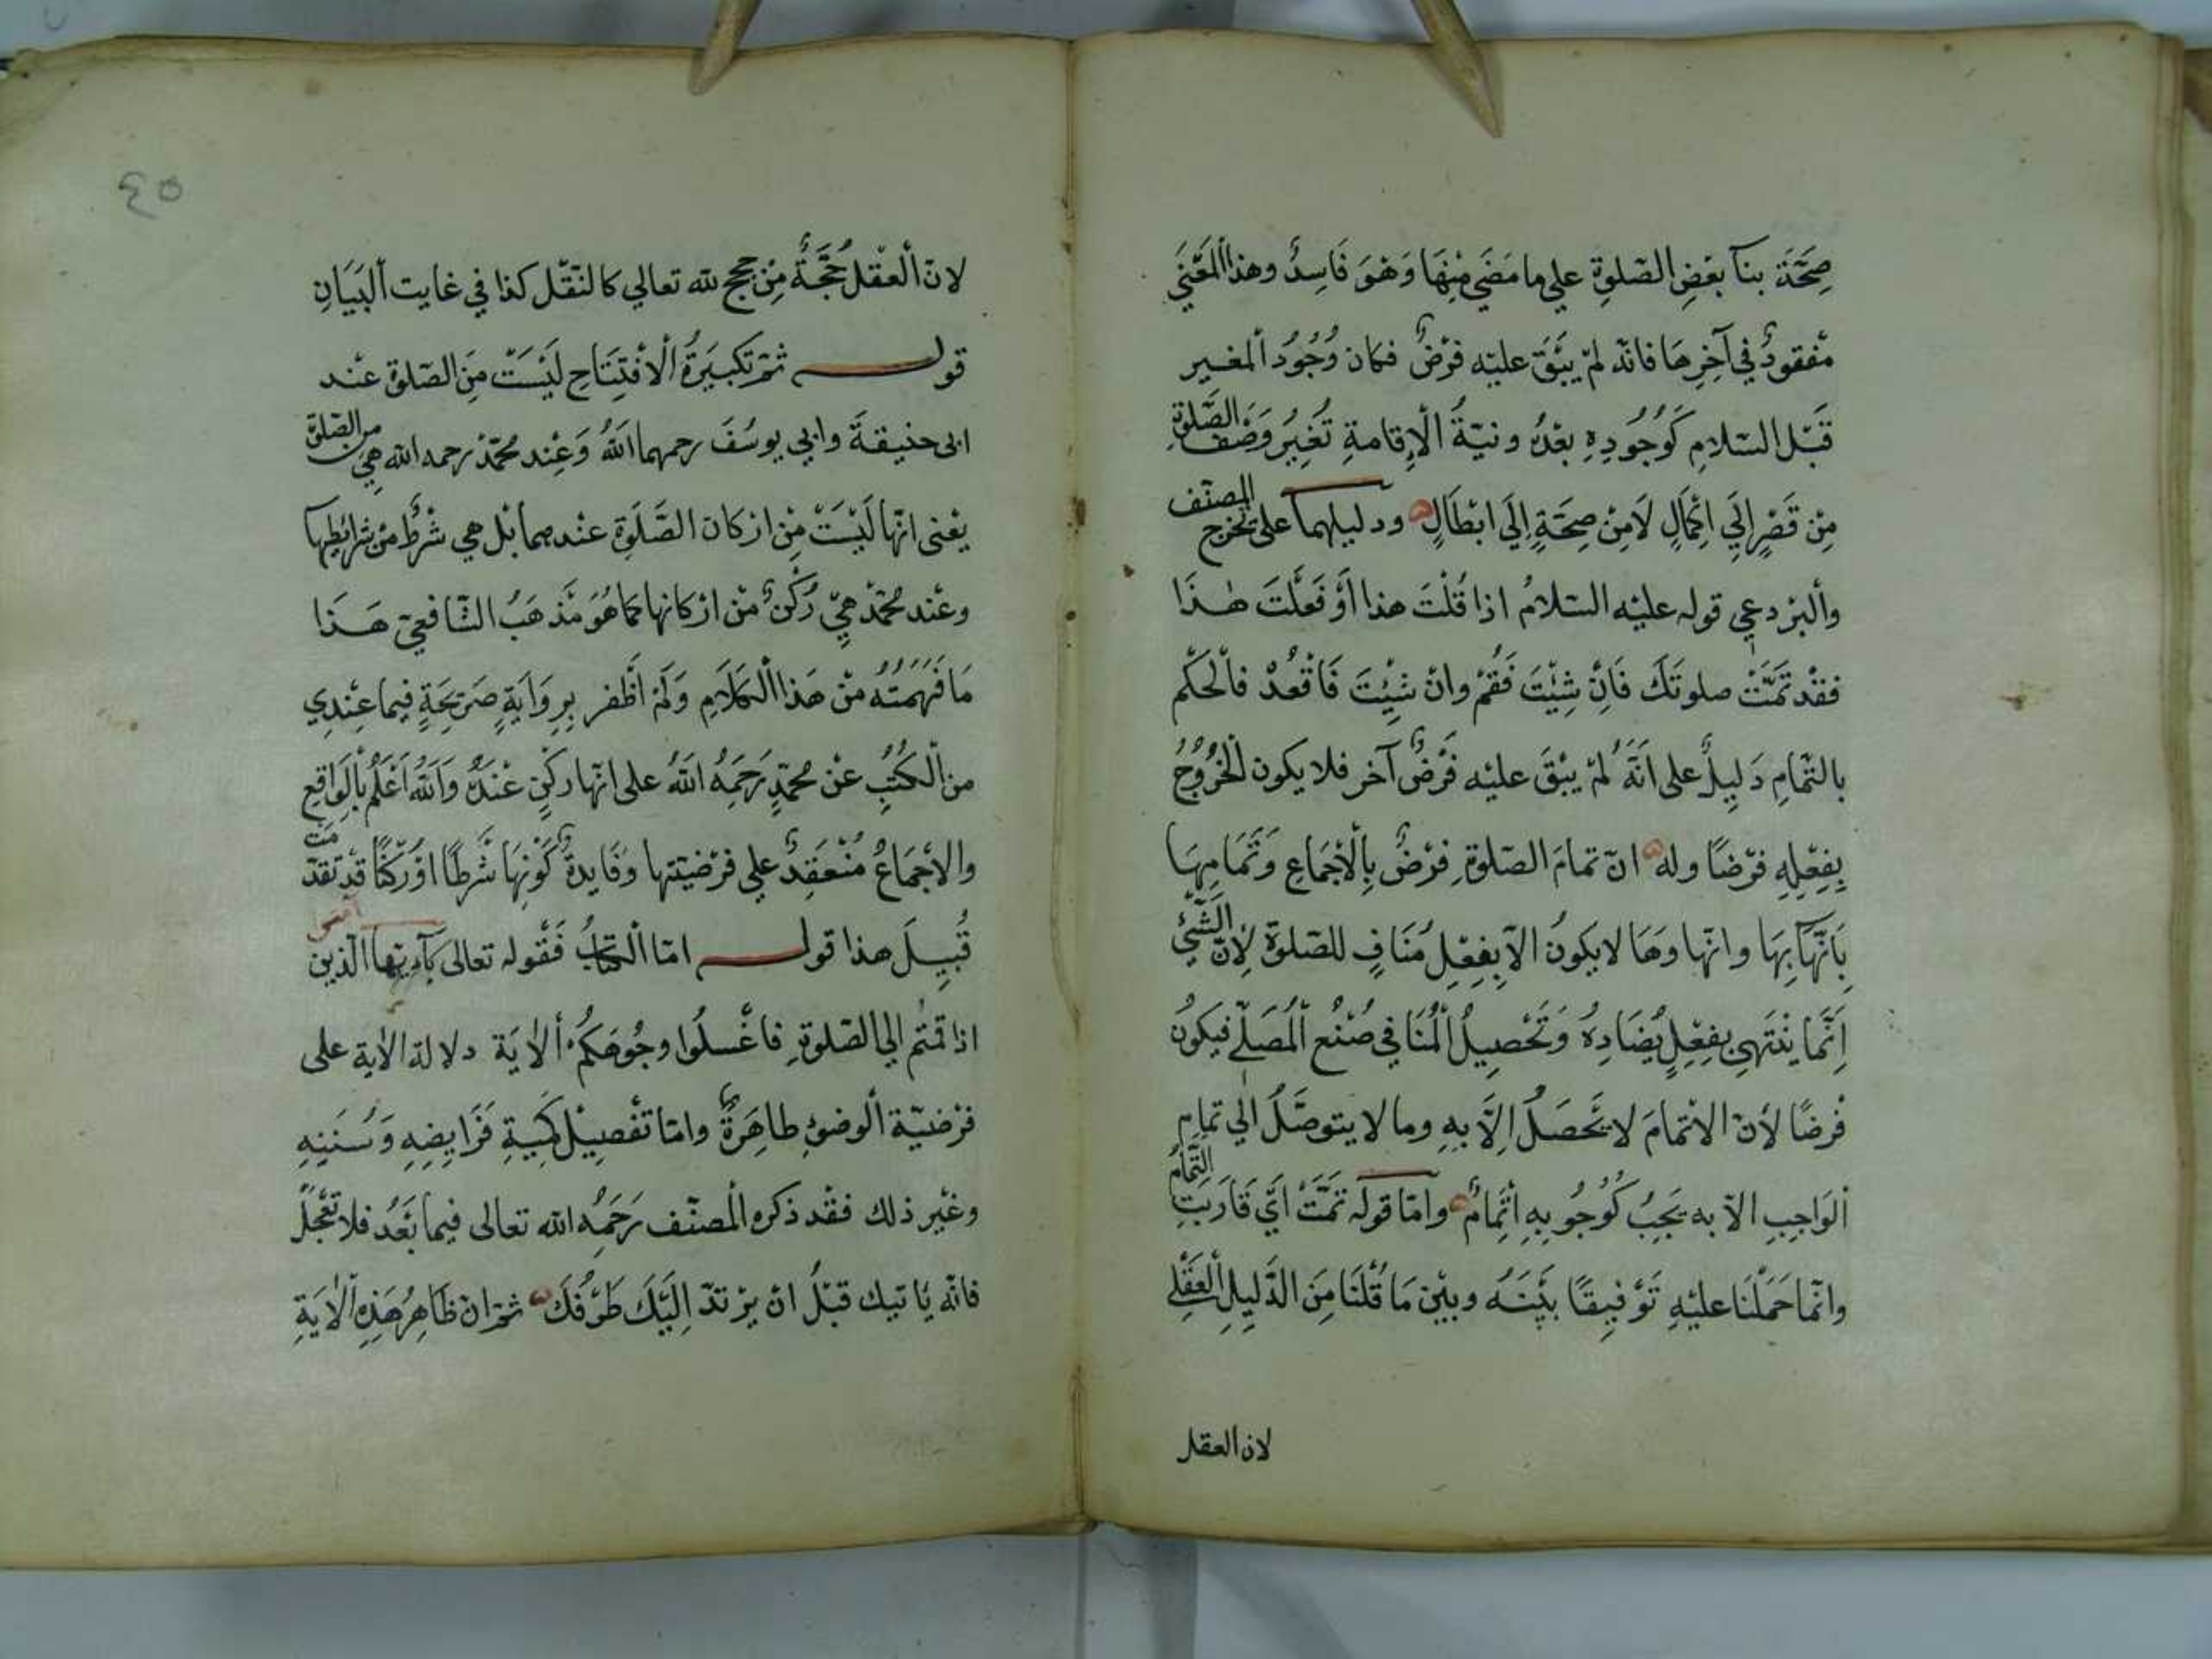 صِحَّةَ بنآ بعْضِ الصّلوةِ علي ما مَضَي مِنْهَا وَهوَ فَاسِدٌ وهذا المَعْنَي
مَفقودٌ في آخِرِهَا فانّه لمْ يَبْقَ عليْه فرْضٌ فكان وُجُودُ المغير
قَبْل السّلامِ كَوُجُودِهِ بعْدهُ ونيّةُ الْإِقامةِ تُغيِرُ وَصْف الصَّلوةِ
مِنْ قَصْرٍ إلَي إكمَالٍ لَا مِنْ صِحَّةٍ إلَي ابْطَالٍ ودليلهما على تخرج المصنّف
والْبرْدعي قوله عليْه السّلامُ اذا قُلْتَ هذا أَوْ فَعلْتَ هٰذَا
فقدْ تَمَّتْ صلوتَكَ فَانْ شِيْتَ فَقُمْ وانْ شِيْتَ فَاقْعُدْ فالْحكْم
بالتّمامِ دَلِيلٌ على انَّهُ لمْ يبْقَ عليْه فَرْضٌ آخر فلا يكون الْخُرُوجُ
بِفِعْلِهِ فرْضًا وله انّ تمامَ الصّلوةِ فرْضٌ بِالْاجمَاعِ وَتَمَامِهَا
بَانْهَآئِهَا وانْهاوهَا لا يكونُ الّا بِفِعْلٍ مُنَافٍ للصّلوةِ لِانّ الشَّيْئَ
اِنَّمَا يَنْتَهِي بفِعْلٍ يُضَادِهُ وَتَحْصِيلُ الْمُنَافي صُنْعُ الْمُصَلّي فيكونُ
فرْضًا لأنّ الاتْمَامَ لا يَحْصَلُ الَّا بِهِ وما لا يتوصَّلُ الي تمامِ
الْوَاجِبِ الّا به يَجِبُ كَوُجُوبِهِ اتْمامٌ وامّا قوله تمَّتْ ايْ قَارَبَتِ التَّمامُ
وانّما حَمَلْنَا عليْهِ تَوْفِيقًا بيْنَهُ وبيْنَ مَا قُلْنَا مِنَ الدَّلِيلِ الْعقْلي
لان العقل
٤٥
لانّ الْعقْل حُجَّةٌ مِنْ حجج لله تعالي كالنّقْل كذا في غايت الْبَيَانِ
قوله ثمّ تكبيرَةُ الْافْتِتَاحِ لَيْسَتْ مِنَ الصّلوةِ عنْد
ابى حنيفةَ وابي يوسُفَ رحمهما اللهُ وَعِنْد محمّدْ رحمه الله هي من الصّلوة
يعْنى انّها لَيْسَتْ مِنْ ارْكان الصَّلَوةِ عنْدهما بْل هي شرْطٌ منْ شرائطها
وعنْد محمّدْ هيَ رُكْنٌ منْ ارْكانها كما هُوَ مَذْهَبُ الشّافعيّ هَذَا
مَا فَهَمَتُهُ منْ هَذا الْكلَامِ وَلَمْ اَظْفر بِرِوَايَةٍ صَرِيحَةٍ فيما عِنْدِي
من الْكُتُبِ عنْ محمّدٍ رَحِمَهُ اللهُ على انّها ركْنٍ عنْدهُ وَاللهُ اعْلمُ بالْوَاقِعِ
والاجْمَاعُ مُنْعَقِدٌ علي فرْضيّتها وَفَايدةُ كَوْنِهَا شَرْطًا اوْ رُكْنًا قدْ تقدّمت
قُبِيلَ هذا قوله امّا الْكتابُ فَقوله تعالى يآ ايّها الّذين آمنوا
اذا قمْتُم الي الصّلوةِ فاغْسلُوا وجُوهَكُمْ الْايَة دلالة الاية على
فرْضيّة الْوضوْءِ ظاهِرَةٌ وامّا تفْصِيْل كميةِ فَرَايضِهِ وَسُنَنِهِ
وغيْر ذلك فقْد ذكره الْمصنّف رَحِمَهُ الله تعالى فيما بَعْدُ فلا تعْجلْ
فانّه يَاتيك قبْل انْ يرْتدّ الَيْكَ طَرْفُكَ ثمّ انّ ظَاهِرُ هَذِهِ الْايَةِ